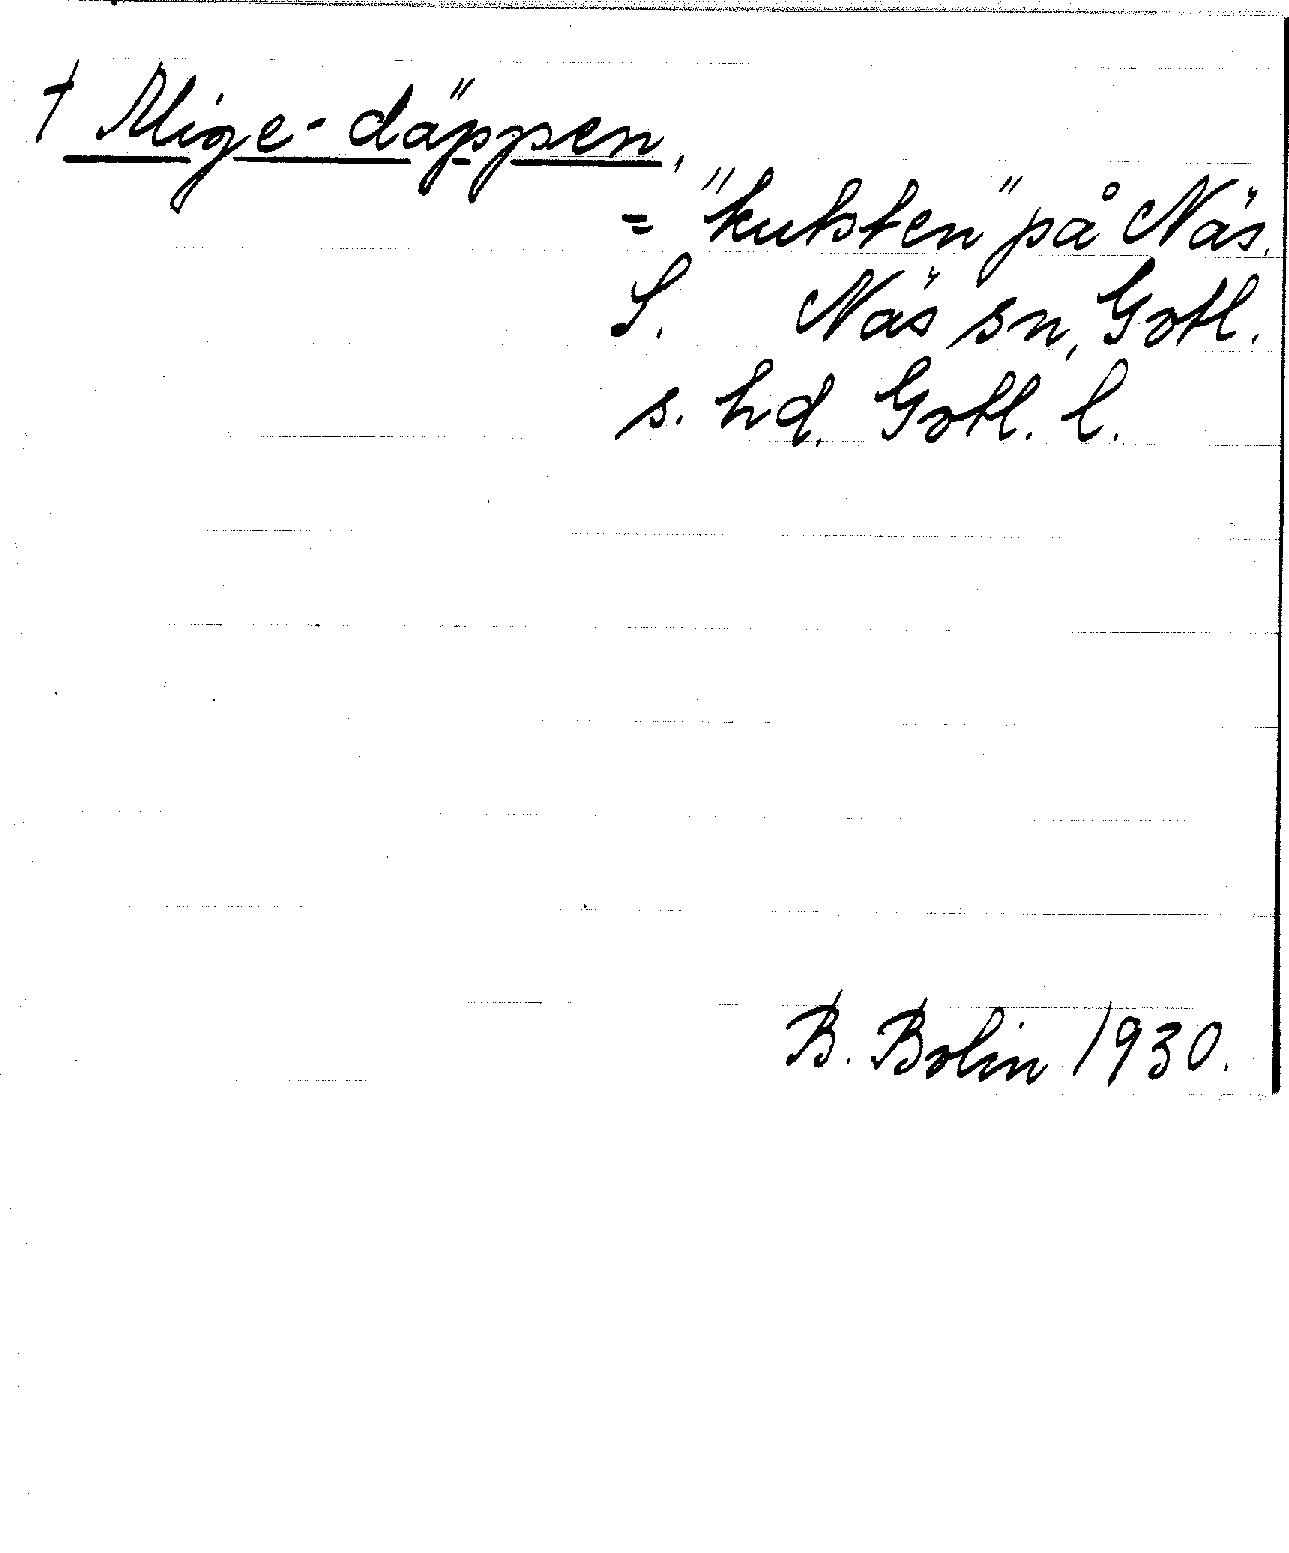 † Mige-däppen,
= "kulsten" på Näs.
S. Näs sn, Gotl.
s. hd. Gotl. l.
B. Bolin 1930.